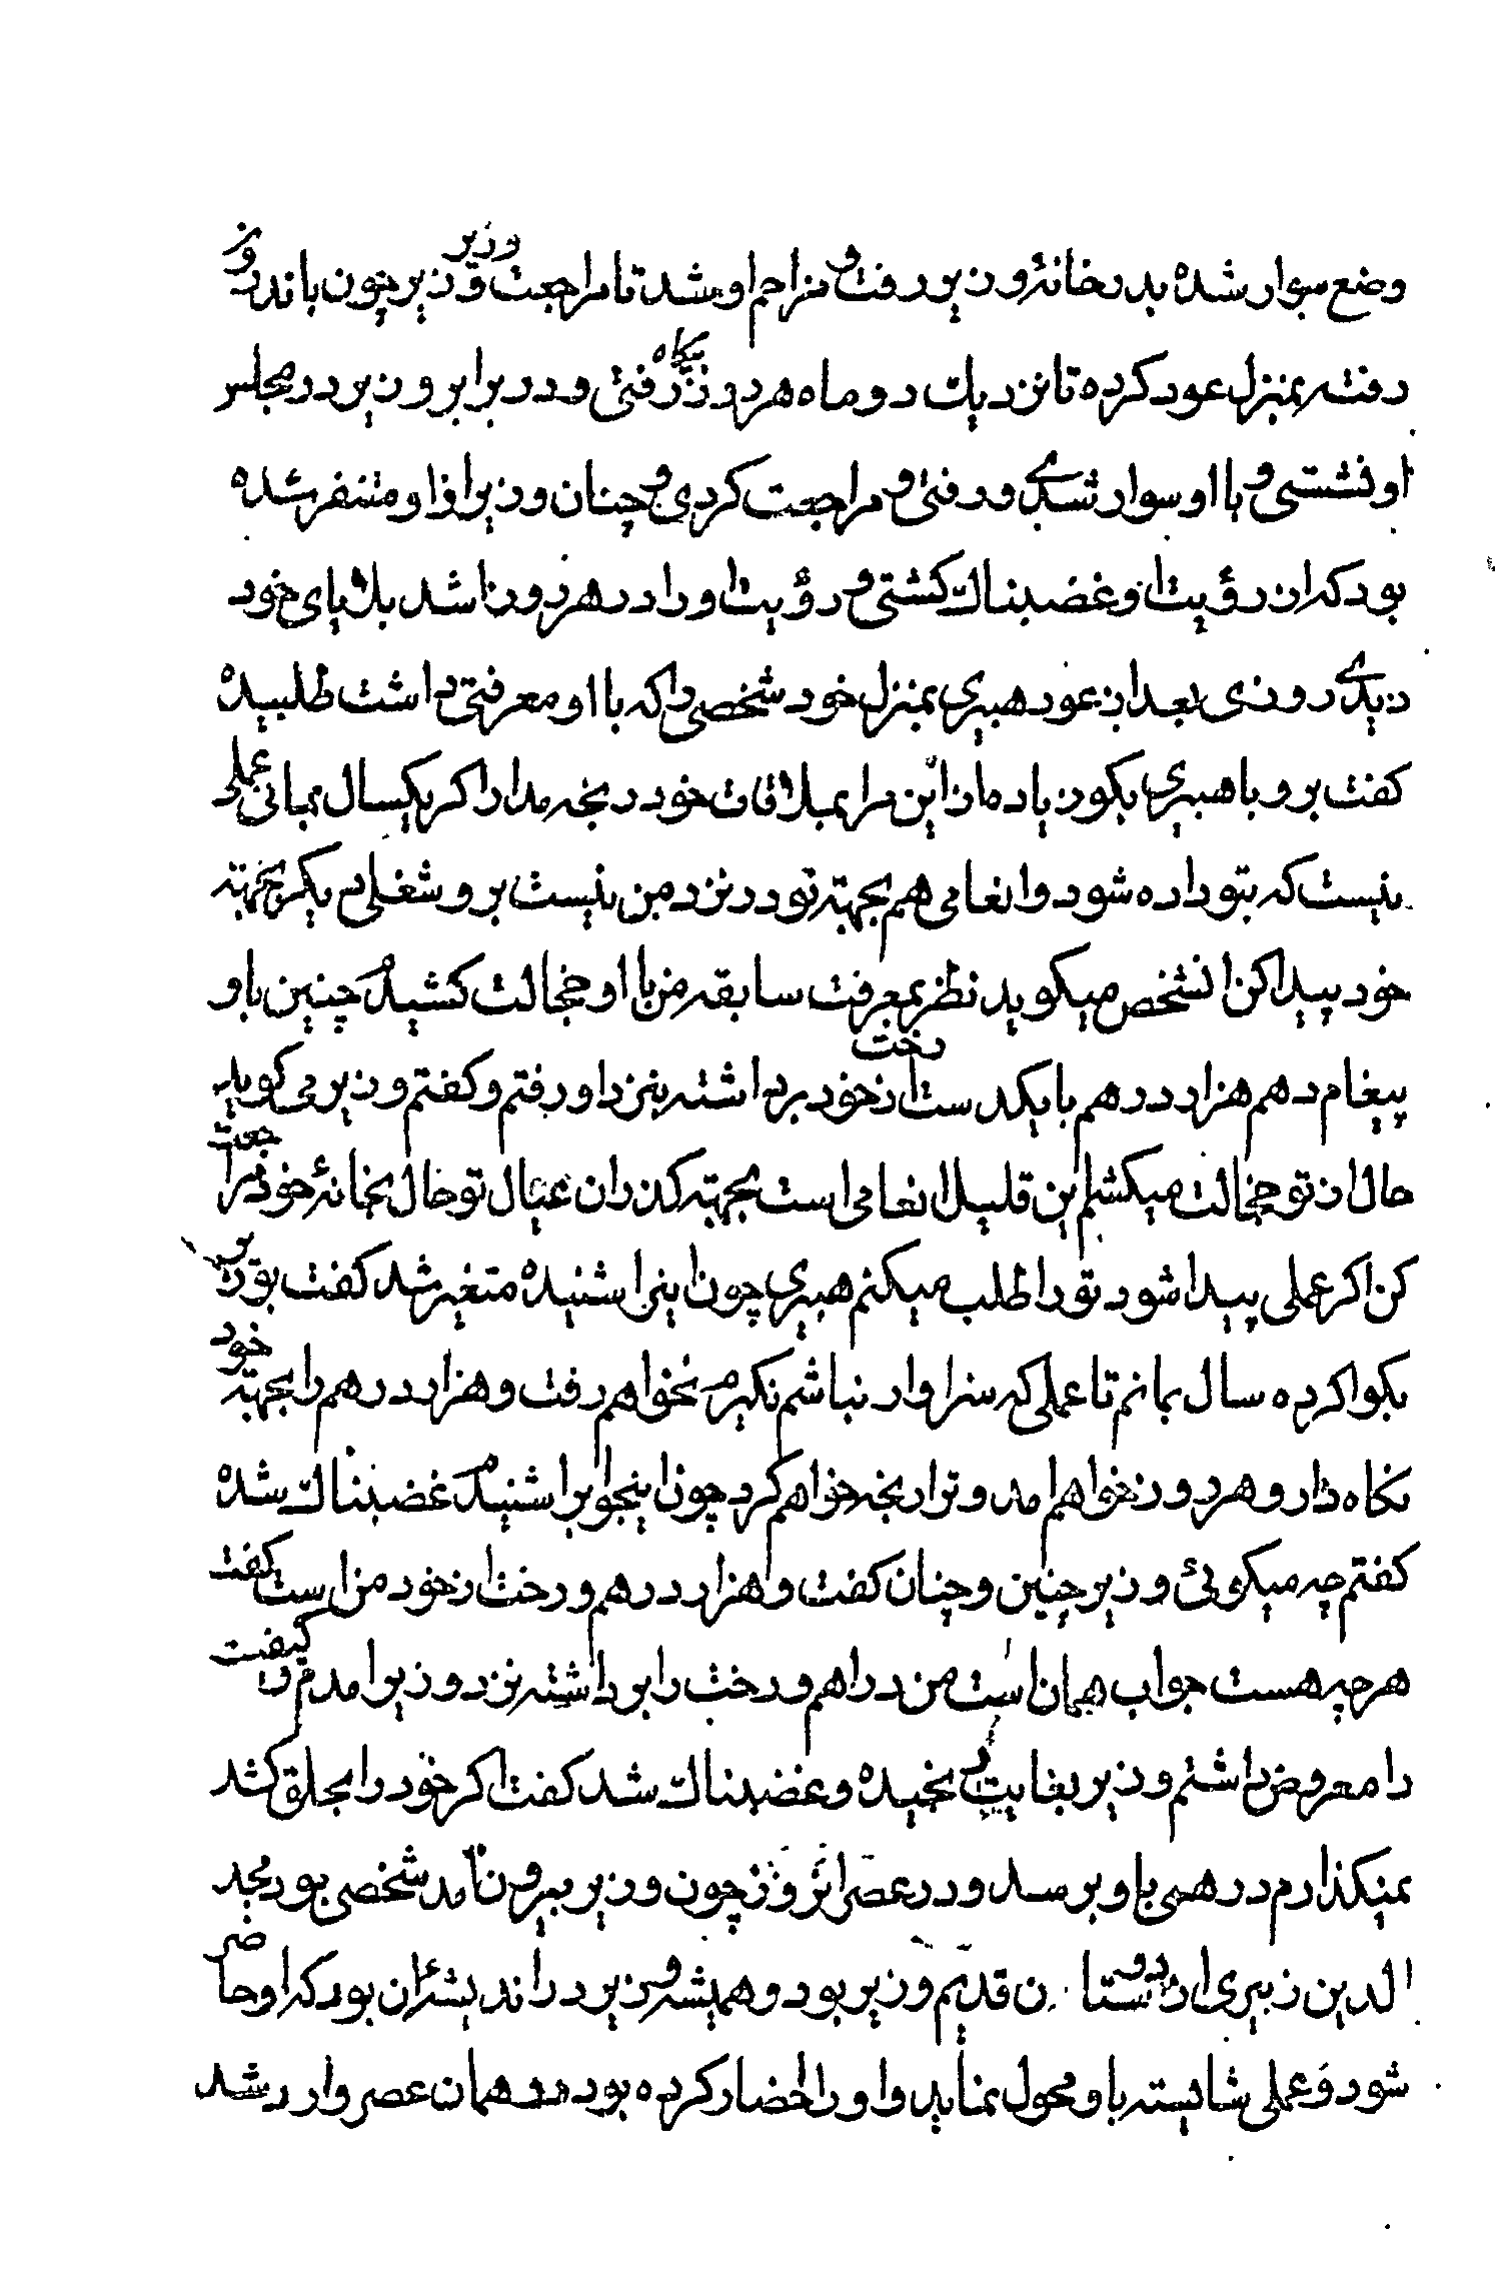 وضع سوار شده بدرخانهٔ وزیر رفت و مزاحم او میشد تا مراجعت وزیر و وزیر چون باندرون
رفته بمنزل عود کرده تا نزدیک دو ماه هر روز پکاه رفتی و در برابر وزیر در مجلس
او نشستی و با او سوار شدی و رفتی و مراجعت کردی و چنان وزیر از او متنفر شده
بود که از رؤیت او غضبناک کشتی و رؤیت او را در هر روز اشد بلا پای خود
دیدی روزی بعد از عود هبیری بمنزل خود شخصی را که با او معرفتی داشت طلبیده
کفت برو با هبیری بکو زیاده از این مرا بملاقات خود رنجه مدار اکر یکسال بمانی عملی
نیست که بتو داده شود و انعامی هم بجهته تو در نزد من نیست برو شغلی دیکر بجهته
خود پیدا کن انشخص میکوید نظر بمعرفت سابقه من با او خجالت کشیدم چنین باو
پیغام دهم هزار درهم با یکدست رخت از خود برداشته بنزد او رفتم و کفتم وزیر می کوید
حال از تو خجالت میکشم این قلیل انعامی است بجهته کذران عیال تو حال بخانهٔ خود مراجعت
کن اکر عملی پیدا شود تو را طلب میکنم هبیری چون اینرا شنیده متغیر شد کفت بوزیر
بکو اکر ده سال بمانم تا عملی که سزاوار باشم نکیرم نخواهم رفت و هزار درهم را بجهته خود
نکاه دار و هر روز خواهم امد و ترا رنجه خواهم کرد چون اینجوابرا شنیدم غضبناک شده
کفتم چه میکوئی وزیر چنین و چنان کفت و هزار درهم و رخت از خود من است کفت
هر چه هست جواب همان است من دراهم و رخت را برداشته نزد وزیر امدم و کیفیت
را معروض داشتم وزیر بغایت رنجیده و غضبناک شد کفت اکر خود را بحلق کشد
نمیکذارم درهمی باو برسد و در عصر انروز چون وزیر بیرون امد شخصی بود مجد
الدین زبیری از دوستان قدیم وزیر بود و همیشه وزیر در اندیشهٔ ان بود که او حاضر
شود و عملی شایسته باو محول نماید و او را احضار کرده بود در همان عصر وارد شد